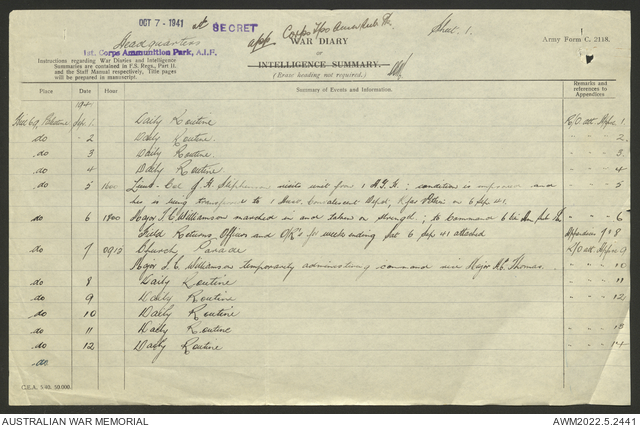 OCT 7 - 1941
SECRET
Headquarters
1st. Corps Ammunition Park, A.I.F.
Sheet 1.
WAR DIARY
Army Form C. 2118.
INTELLIGENCE SUMMARY.
(Erase heading not required.)
Instructions regarding War Diaries and Intelligence
Summaries are contained in F.S. Regs., Part II.
and the Staff Manual respectively. Title pages
will be prepared in manuscript.
Place Date Hour Summary of Events and Information. Remarks and references to Appendices
1941
Palestine Sep. 1. Daily Routine R/O att. Appx. 1
do - 2 Daily Routine. " - - 2.
do 3 Daily Routine.
do 4 Daily Routine
do 5 Lieut-Col visits unit for 1 A.G.H.; condition is improved and
he is being transferred to 1 Aust. Convalescent Depot, on 6 Sep 41.
do 6 1800 Major J.C. Williamson marched in and taken on strength; to command - - 6
Field Returns Officers and O/R's for week ending Sat 6 Sep 41 attached Appendices 7 & 8
do 7 0915 Church Parade R/O att. Appx 9
Major J.C. Williamson temporarily administering command vice Major Thomas. - - 10
do 8 Daily Routine
do 9 Daily Routine - - 12
do 10 Daily Routine
do 11 Daily Routine - - 13
do 12 Daily Routine - - 14
do
C.R.A. 3/40. 50,000.
AUSTRALIAN WAR MEMORIAL
AWM2022.5.2441